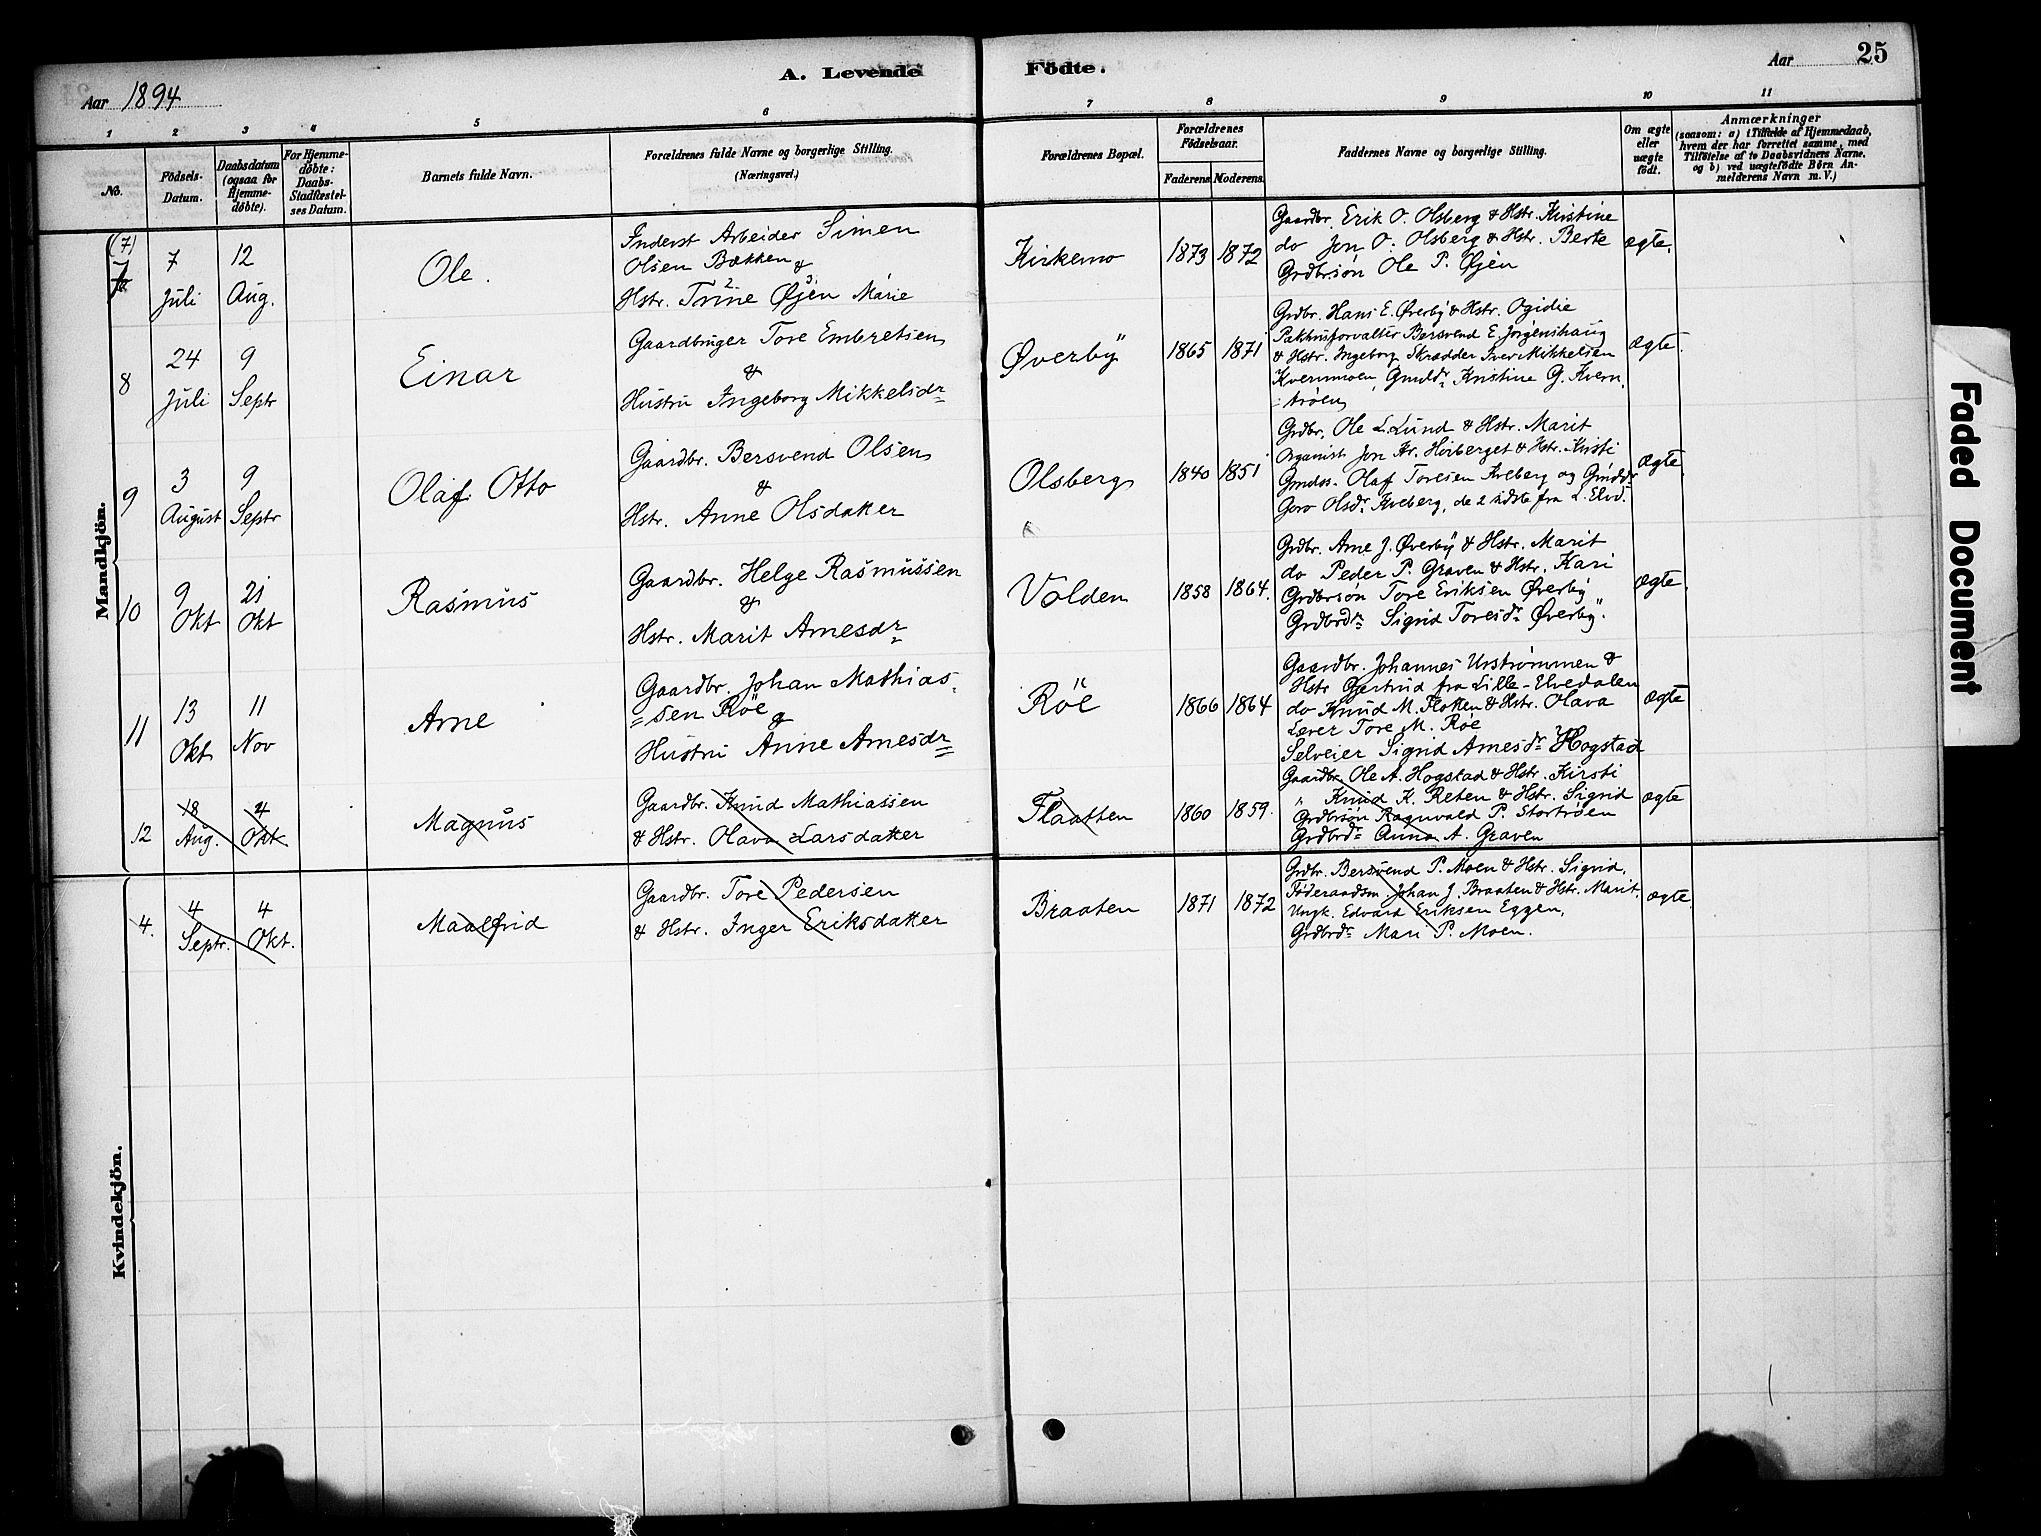 A. Levende Födte.
Aar 1894
Aar 25
1 2 3 4 5 6 7 8 9 10 11
No.
Födsels-Datum.
Daabsdatum (ogsaa for Hjemme-döbte).
For Hjemme-döbte: Daabs-Stadfæstel-ses Datum.
Barnets fulde Navn.
Forældrenes fulde Navne og borgerlige Stilling.
(Næringsvei.)
Forældrenes Bopæl.
Forældrenes Födselsaar.
Faderens. Moderens.
Faddernes Navne og borgerlige Stilling.
Om ægte eller uægte födt.
Anmærkninger
(saasom: a) i Tilfælde af Hjemmedaab,
hvem der har forrettet samme, med
Tilföielse af to Daabsvidners Navne,
og b) ved uægtefödte Börn An-
melderens Navn m. V.)
Mandkjön.
(7)
7
Juli
12
Aug.
Ole.
Inderst Arbeider Simen
Olsen Bækken
&
Hstr. Trine Øjen Marie
Kirkemo
1873 1872
Gaardbr. Erik O. Olsberg & Hstr. Kirstine
do Jon O. Olsberg & Hstr. Berte
Grdbrsøn Ole P. Øjen
ægte.
8
24
Juli
9
Septr
Einar
Gaardbruger Tore Embretsen
&
Hustru Ingeborg Mikkelsdr
Øverby
1865 1871
Grdbr. Hans E. Øverby & Hstr. Ogidie
Pakhusforvalter Bersvend E. Jørgenshaug
& Hstr. Ingeborg Skrædder Iver Mikkelsen
Kvernmoen, Gmldr Kristine G. Kvern
trøen
ægte.
9
3
August
9
Septr
Olaf Otto
Gaardbr. Bersvend Olsen
&
Hstr. Anne Olsdatter
Olsberg
1840 1851
Grdbr. Ole L. Lund & Hstr. Marit
Organist Jon Kr. Horberget & Hstr. Kirsti
Olaf Toresen Kveberg og
Goro Olsdr Kveberg, de 2 sidste fra L. Elvd.
ægte
10
9
Okt
21
Okt
Rasmus
Gaardbr. Helge Rasmussen
&
Hstr. Marit Arnesdr
Volden
1858 1864.
Grdbr. Arne J. Øverby & Hstr. Marit
do Peder P. Graven & Hstr. Kari
Grdbrsøn Tore Eriksen Øverby
Grdbrdr Sigrid Toresdr Øverby.
ægte.
11
13
Okt
11
Nov
Arne
Gaardbr. Johan Mathias
=sen Røe
&
Hustru Anne Arnesdr
Røe
1866 1864
Gaardbr. Johannes Urstrømmen &
Hstr Gjertrud fra Lille-Elvedalen
do Knud M. Floken & Hstr. Olava
Lærer Tore M. Røe
Selveier Sigrid Arnesdr Hogstad
ægte
12
18
Aug.
4
Okt
Magnus
Gaardbr. Knud Mathiassen
& Hstr. Olava Larsdatter
Flaatten
1860 1859.
Gaardbr. Ole A. Hogstad & Hstr. Kirsti
" Knud K. Reten & Hstr. Sigrid
Grdbrsøn Ragnvald P. Stortrøen
Grdbrdr Anna A. Graven
ægte
Kvindekjön.
4.
4
Septr.
4
Okt.
Maalfrid
Gaardbr. Tore Pedersen
& Hstr. Inger Eriksdatter
Braaten
1871 1872
Grdbr. Bersvend P. Moen & Hstr. Sigrid,
Föderaadsm Johan J. Braaten & Hstr. Marit.
Ungk. Edvard Eriksen Eggen,
Grdbrdr Mari P. Moen.
ægte.
Faded Document